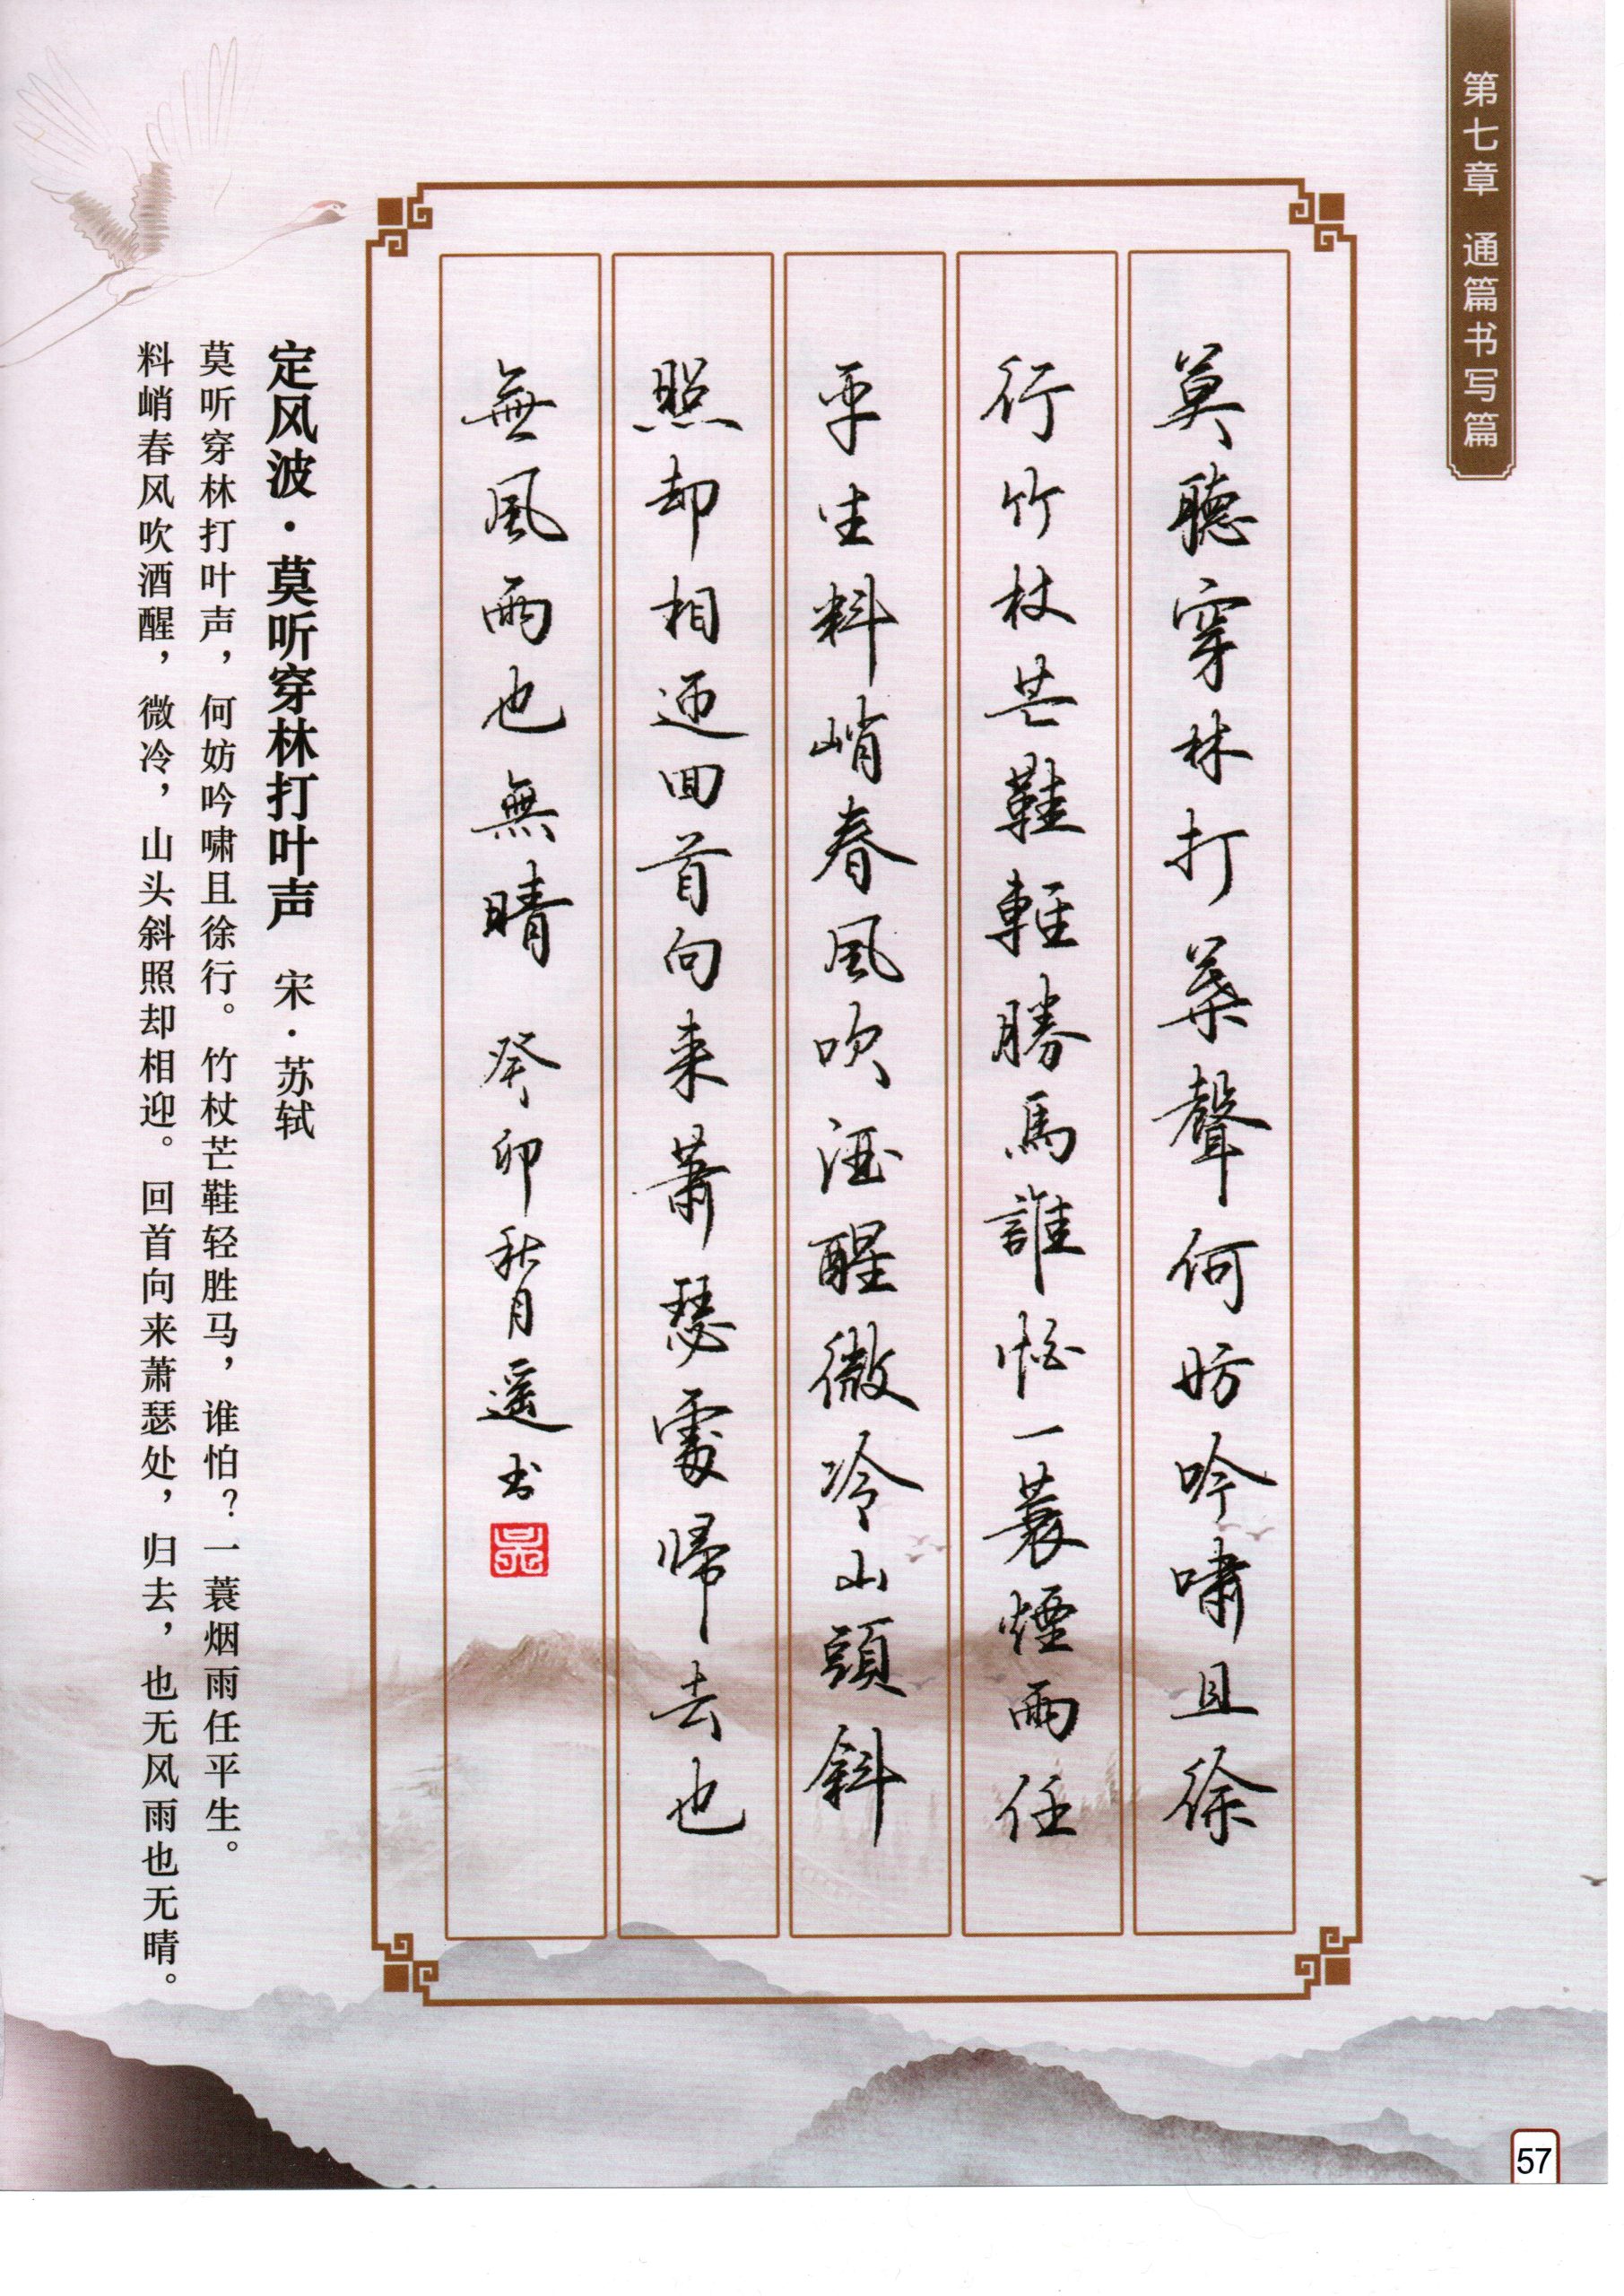 第七章 通篇书写篇
莫聽穿林打葉聲何妨吟嘯且徐
行竹杖芒鞋輕勝馬誰怕一蓑煙雨任
平生料峭春風吹酒醒微冷山頭斜
照却相迎回首向来蕭瑟處歸去也
無風雨也無晴 癸卯秋月遥书
定风波·莫听穿林打叶声 宋·苏轼
莫听穿林打叶声，何妨吟啸且徐行。竹杖芒鞋轻胜马，谁怕？一蓑烟雨任平生。
料峭春风吹酒醒，微冷，山头斜照却相迎。回首向来萧瑟处，归去，也无风雨也无晴。
57